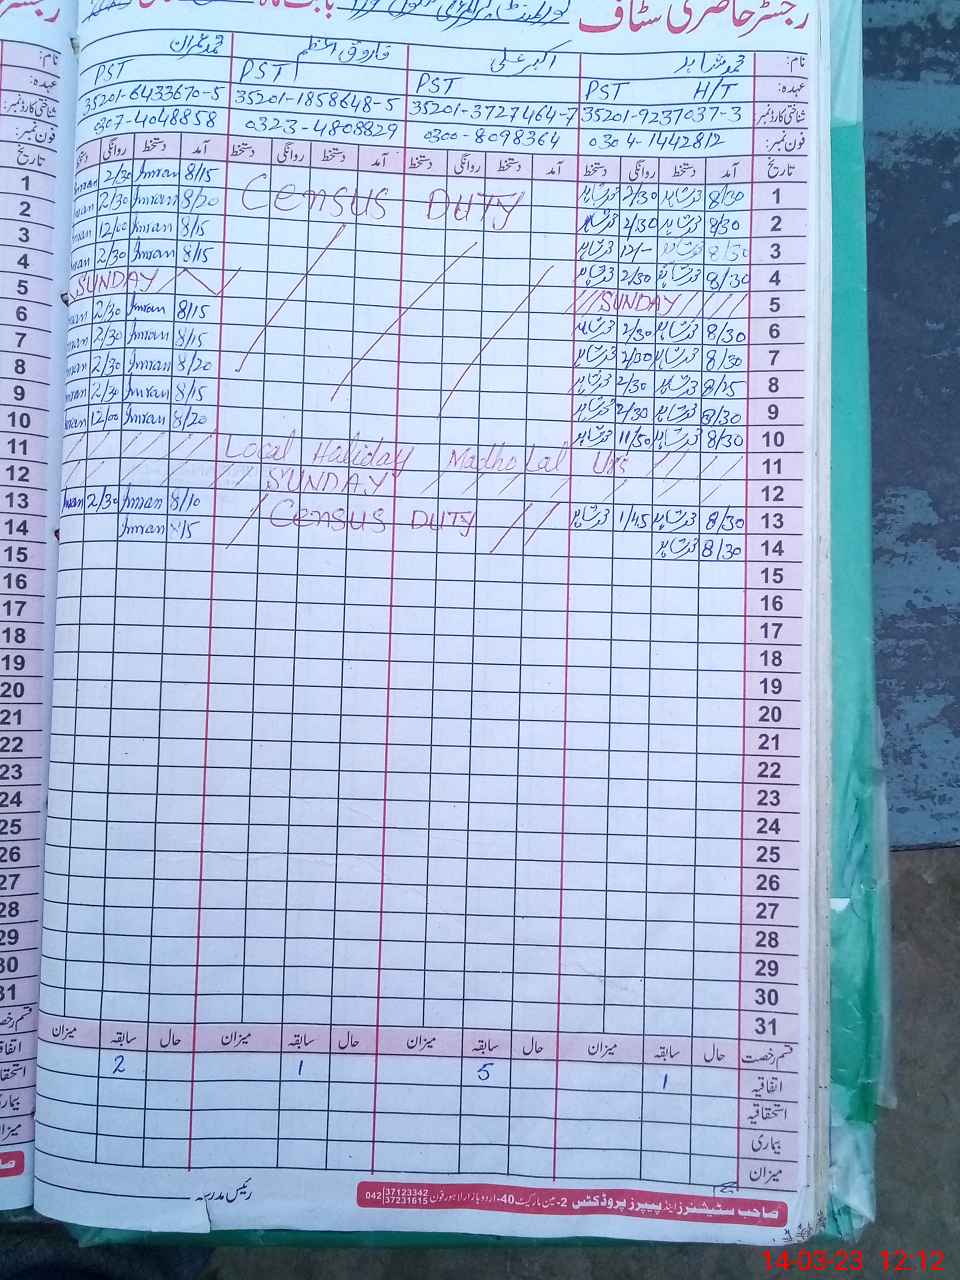 رجسٹر حاضری سٹاف
بابت ماہ
نام: محمد شاہد اکبر علی فاروق اعظم محمد عمران
عہدہ: PST H/T PST PST PST
شناختی کارڈ نمبر: 35201-9237037-3 35201-3727464-7 35201-1858648-5 35201-6433670-5
فون نمبر: 0304-1442812 0300-8098364 0323-4808829 0307-4048858
تاریخ آمد دستخط روانگی دستخط آمد دستخط روانگی دستخط آمد دستخط روانگی دستخط آمد دستخط روانگی دستخط
1 8/30 محمد شاہد 2/30 محمد شاہد Census DUTY 8/15 Imran 2/30 Imran
2 8/30 محمد شاہد 2/30 محمد شاہد 8/20 Imran 2/30
3 8/30 محمد شاہد 12/- محمد شاہد 8/15 Imran 12/00
4 8/30 محمد شاہد 2/30 محمد شاہد 8/15 Imran 2/30
5 SUNDAY SUNDAY
6 8/30 محمد شاہد 2/30 محمد شاہد 8/15 Imran 2/30
7 8/30 محمد شاہد 2/30 محمد شاہد 8/15 Imran 2/30
8 8/15 محمد شاہد 2/30 محمد شاہد 8/20 Imran 2/30
9 8/30 محمد شاہد 2/30 محمد شاہد 8/15 Imran 2/30
10 8/30 محمد شاہد 11/50 محمد شاہد 8/20 Imran 12/00
11 Local Haliday Madho Lal Urs
12 SUNDAY
13 8/30 محمد شاہد 1/45 محمد شاہد Census DUTY 8/10 Imran 2/30 Imran
14 8/30 محمد شاہد Imran
15
16
17
18
19
20
21
22
23
24
25
26
27
28
29
30
31
قسم رخصت حال سابقہ میزان حال سابقہ میزان حال سابقہ میزان حال سابقہ میزان
اتفاقیہ 1 5 1 2
استحقاقیہ
بیماری
میزان
رئیس مدرسہ
صاحب سٹیشنرز اینڈ پیپرز پروڈکٹس 2-مین مارکیٹ 40-اردو بازار لاہور فون 042 37123342 37231615
14-03-23 12:12